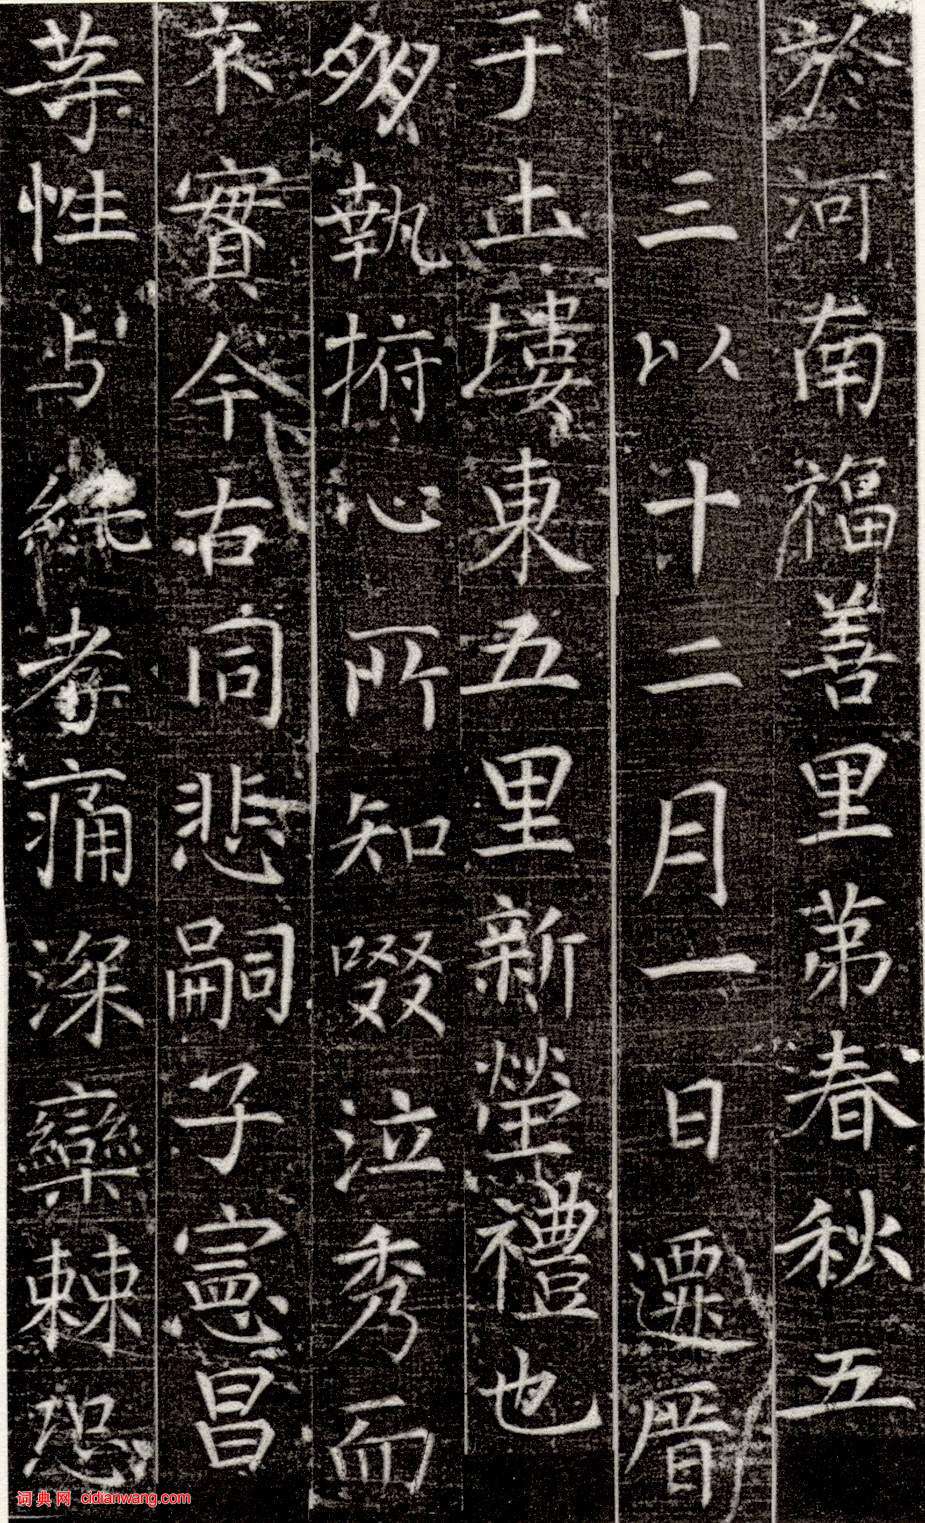 於河南福善里苐春秋五
十三以十二月一日遷厝
于土塿東五里新塋禮也
朋執拊心所知啜泣秀而
不實今右同悲嗣子憲昌
等性与純孝痛深欒棘恐
词典网 cidianwang.com